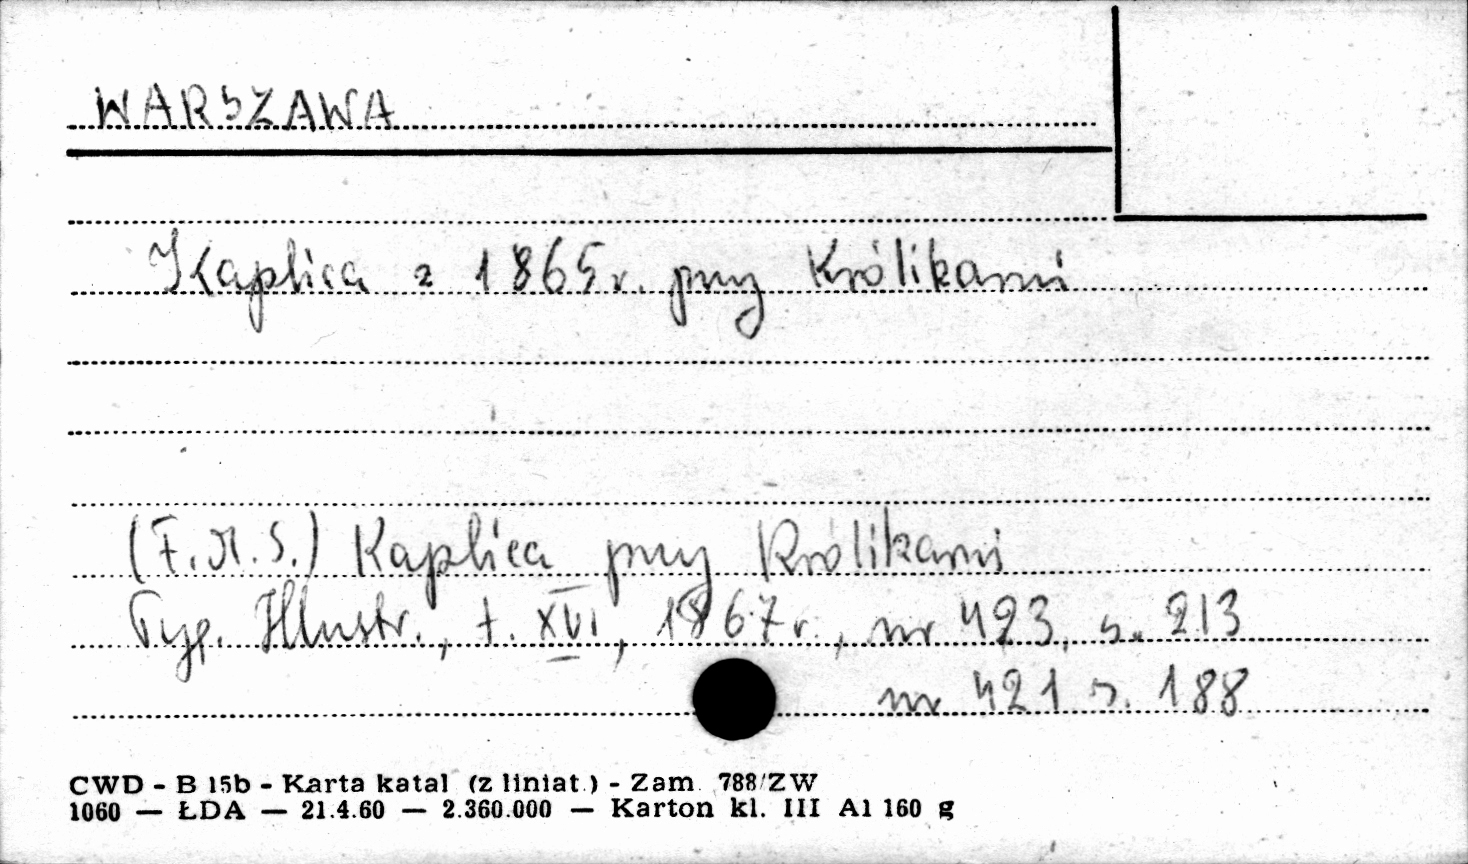 WARSZAWA
Kaplica z 1865 r. przy Królikarni
(F. M. S.) Kaplica przy Królikarni
Tyg. Illustr., t. XVI, 1867 r., nr 423, s. 213
nr 421 s. 188
CWD - B 15b - Karta katal (z liniat.) - Zam. 788/ZW
1060 — ŁDA — 21.4.60 — 2.360.000 — Karton kl. III A1 160 g